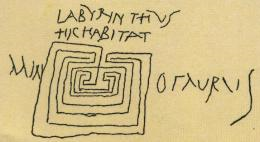 LABYRINTHUS
HIC HABITAT
MINOTAURUS